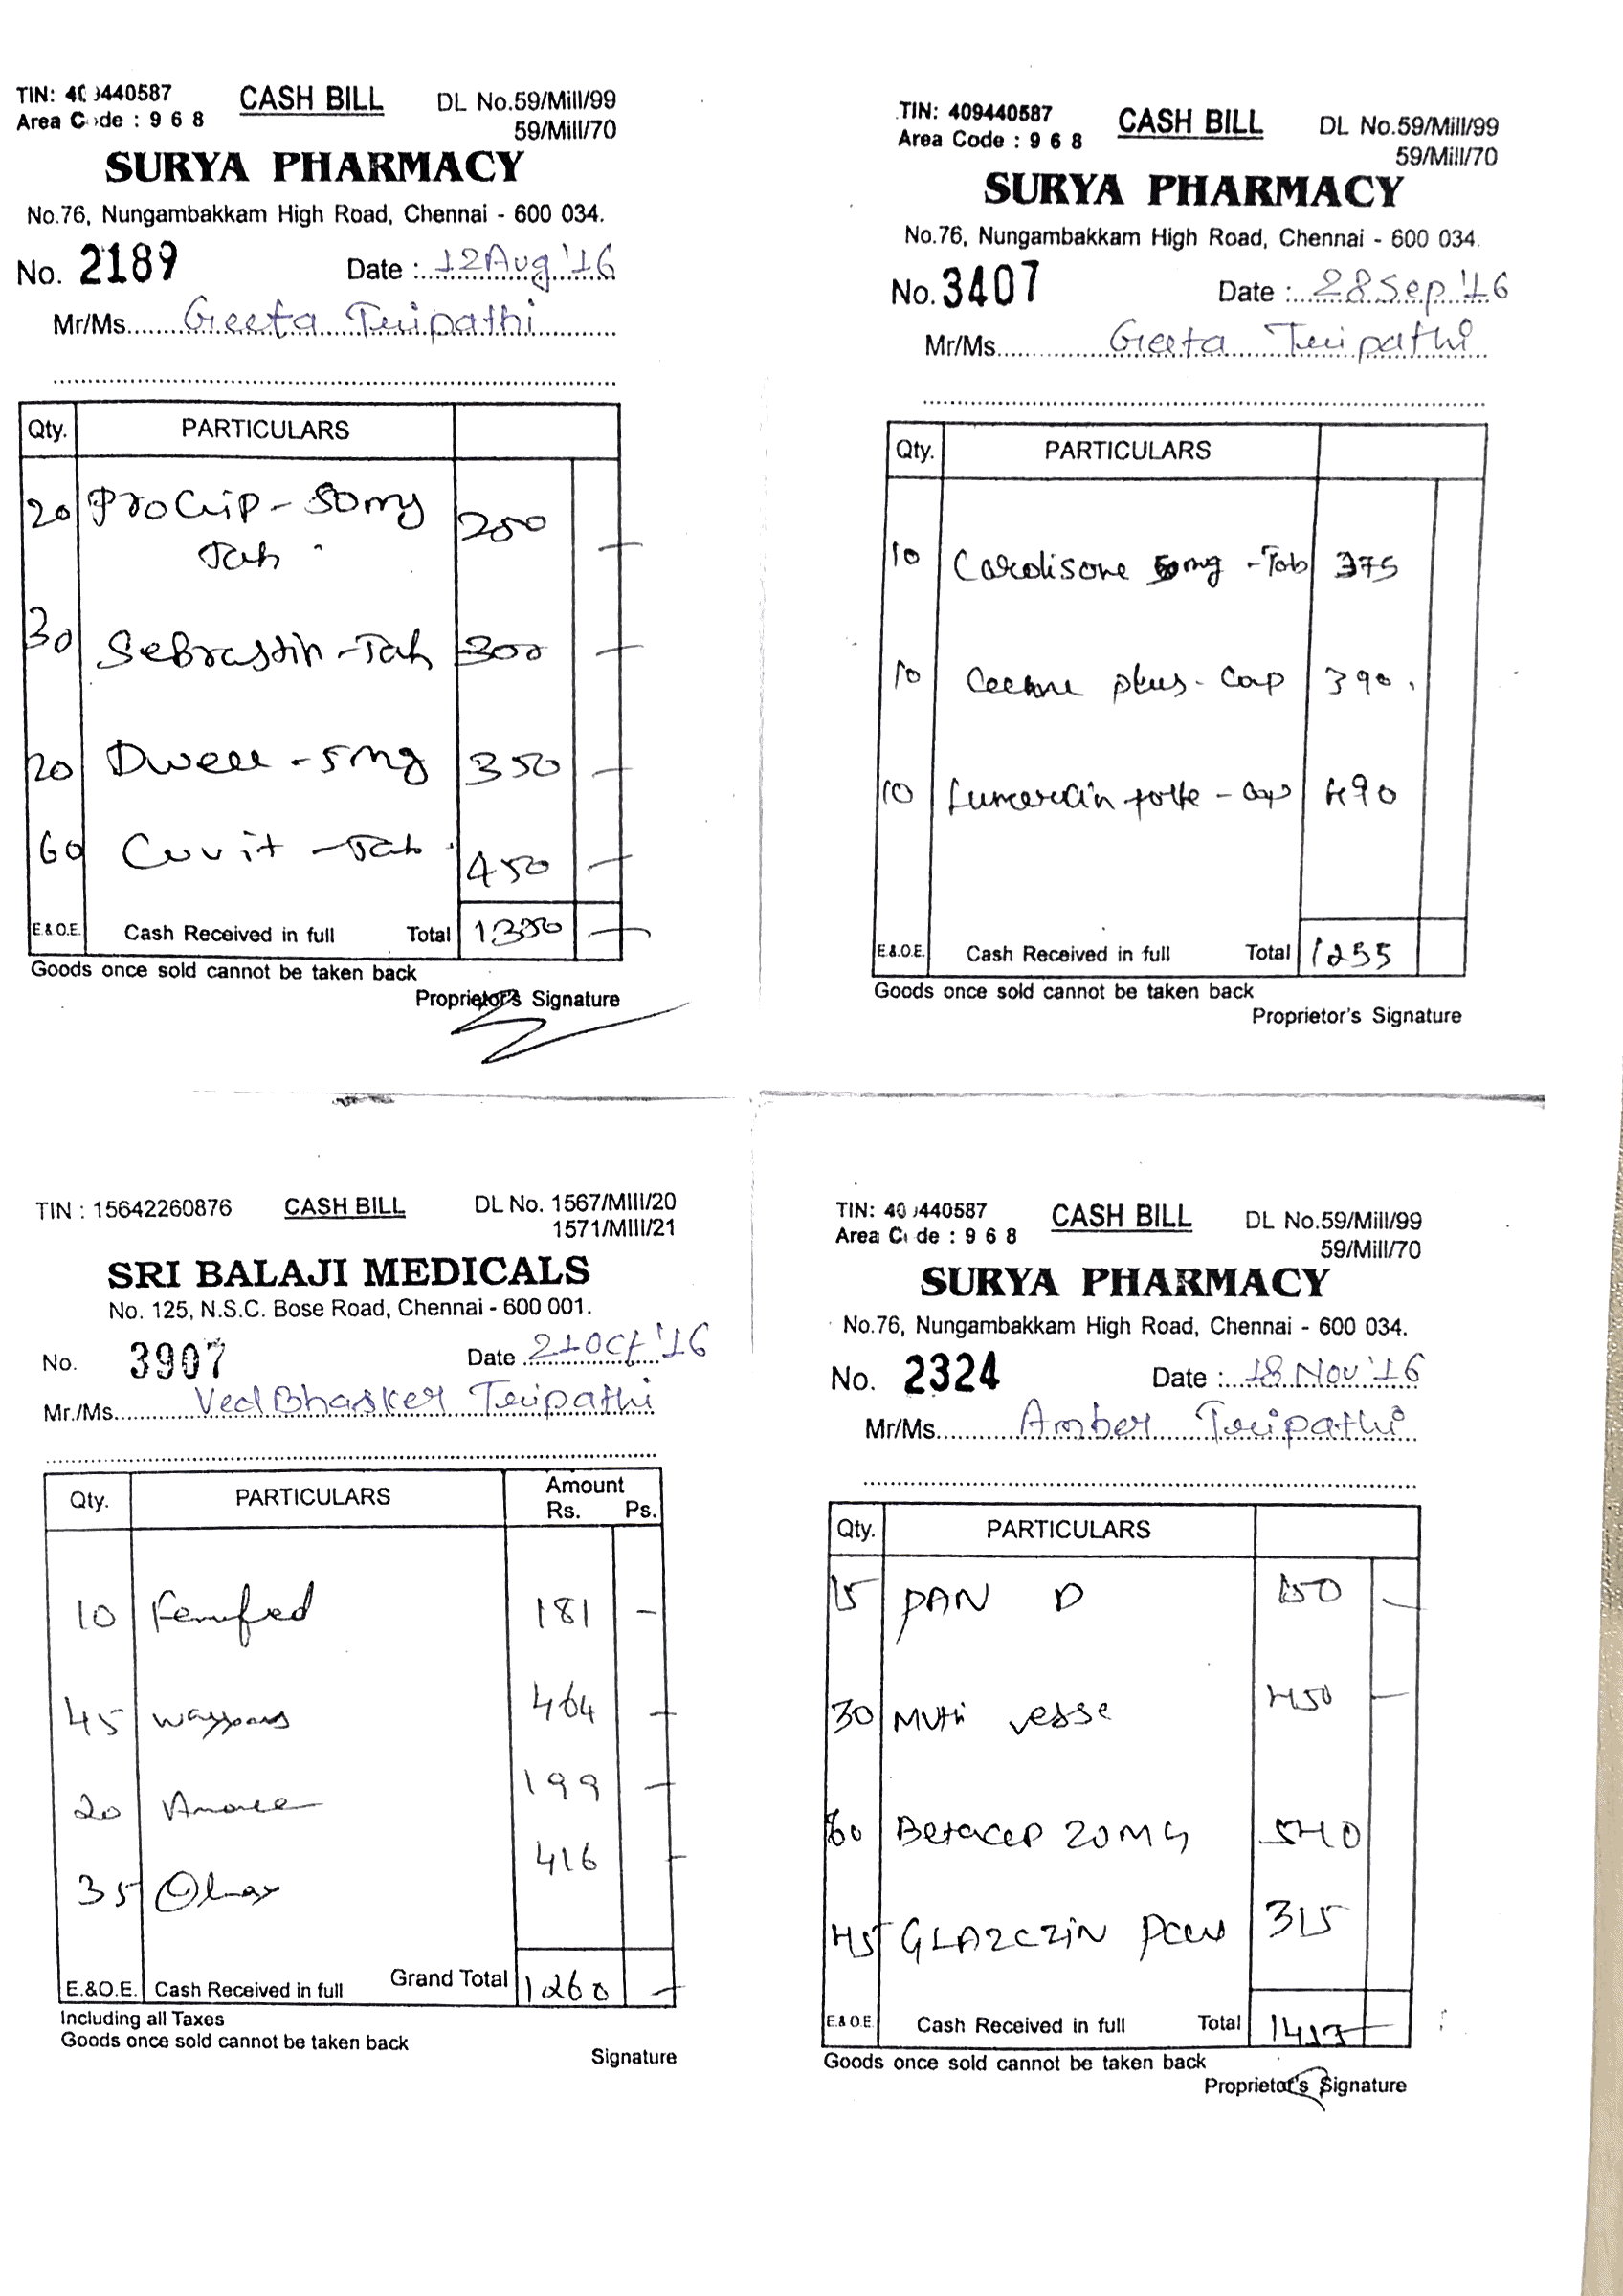 TIN: 409440587 CASH BILL DL No.59/Mill/99
Area Code : 9 6 8 59/Mill/70
SURYA PHARMACY
No.76, Nungambakkam High Road, Chennai - 600 034.
No. 2189 Date : 12 Aug '16
Mr/Ms. Geeta Tripathi
Qty. PARTICULARS
20 50mg 250
Tab
30 Tab 300
20 5mg 350
60 Tab 450
E.&O.E. Cash Received in full Total 1350
Goods once sold cannot be taken back
Proprietor's Signature
TIN: 409440587 CASH BILL DL No.59/Mill/99
Area Code : 9 6 8 59/Mill/70
SURYA PHARMACY
No.76, Nungambakkam High Road, Chennai - 600 034.
No. 3407 Date : 28 Sep '16
Mr/Ms. Geeta Tripathi
Qty. PARTICULARS
10 Cardisone mg - Tab 375
10 plus - Cap 390
10 forte - Cap 490
E.&.O.E. Cash Received in full Total 1255
Goods once sold cannot be taken back
Proprietor's Signature
TIN : 15642260876 CASH BILL DL No. 1567/MIII/20
1571/MIII/21
SRI BALAJI MEDICALS
No. 125, N.S.C. Bose Road, Chennai - 600 001.
No. 3907 Date 21 Oct '16
Mr./Ms. Ved Bhasker Tripathi
Qty. PARTICULARS Amount
Rs. Ps.
10 181 -
45 464 -
20 199 -
35 416 -
E.&O.E. Cash Received in full Grand Total 1260 -
Including all Taxes
Goods once sold cannot be taken back
Signature
TIN: 409440587 CASH BILL DL No.59/Mill/99
Area Code : 9 6 8 59/Mill/70
SURYA PHARMACY
No.76, Nungambakkam High Road, Chennai - 600 034.
No. 2324 Date : 18 Nov '16
Mr/Ms. Amber Tripathi
Qty. PARTICULARS
15 PAN D 150 -
30 Multi vesse 450 -
60 Betacep 20MG 540
45 315
E.&O.E. Cash Received in full Total
Goods once sold cannot be taken back
Proprietor's Signature